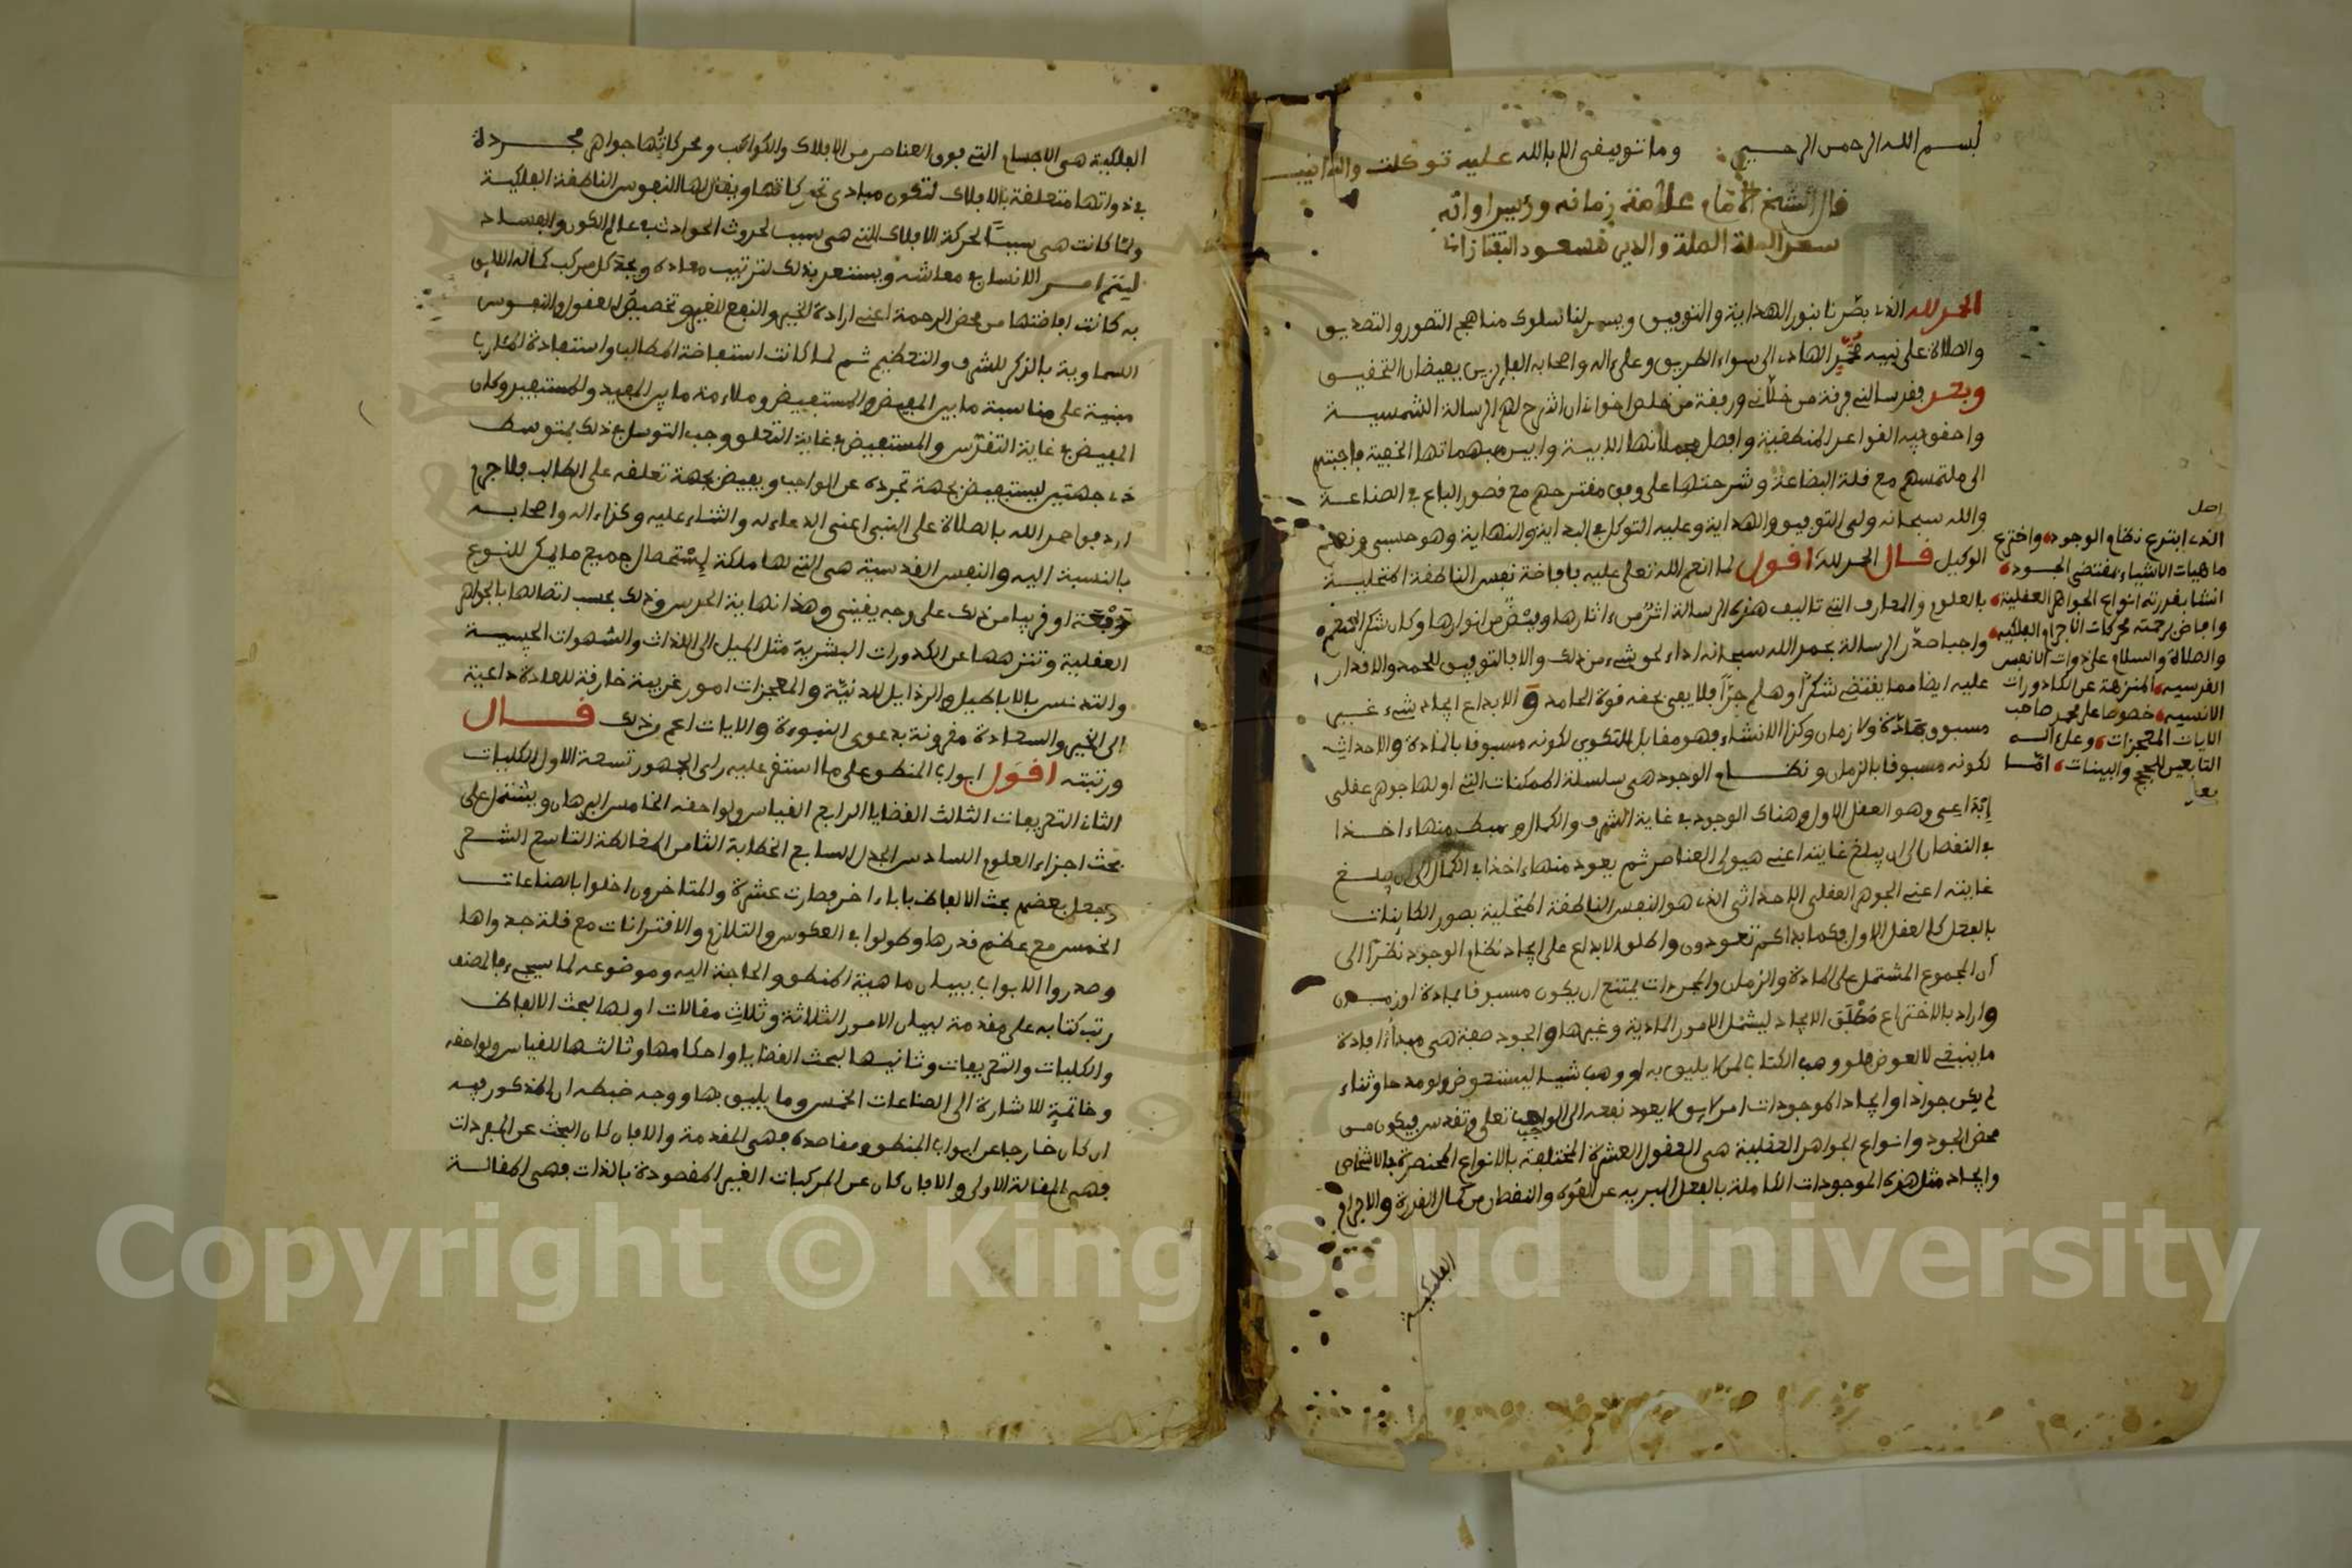 بسم الله الرحمن الرحيم وما توفيقي الا بالله عليه توكلت واليه انيب
قال الشيخ الامام علامة زمانه وفريد اوانه
سعد الملة والدين مسعود التفتازاني
الحمد لله الذي بصرنا بنور الهداية والتوفيق ويسر لنا سلوك مناهج التصور والتصديق
والصلاة على نبيه محمد الهادي الى سواء الطريق وعلى اله واصحابه الفايزين بفيضان التحقيق
وبعد فقد سالني فرقة من خلاني ورفقة من خلص اخواني ان اشرح لهم الرسالة الشمسية
واحقق فيه القواعد المنطقية وافصل مجملاتها الابية وابين مبهماتها الخفية فاجبتهم
الى ملتمسهم مع قلة البضاعة وشرحتها على وفق مقترحهم مع قصور الباع في الصناعة
والله سبحانه ولي التوفيق والهداية وعليه التوكل في البداية والنهاية وهو حسبي ونعم
الوكيل قال الحمد لله اقول لما انعم الله تعلى عليه بافاضة نفس الناطقة المتحلية
بالعلوم والمعارف التي تاليف هذه الرسالة اثر من ءاثارها وفيض من انوارها وكان شكر المنعم
واجبا صدر الرسالة بحمد الله سبحانه اداء لحق شيء من ذلك والا فالتوفيق للحمد والاقدار
عليه ايضا مما يقتضي شكرا وهلم جرا فلا يفي بحقه قوة الحامد والابداع ايجاد شيء غير
مسبوق بمادة ولا زمان وكذا الانشاء فهو مقابل للتكوين لكونه مسبوقا بالمادة والاحداث
لكونه مسبوقا بالزمان ونظام الوجود هي سلسلة الممكنات التي اولها جوهر عقلي
ابداعي وهو العقل الاول وهناك الوجود في غاية الشرف والكمال وهبط منها ءاخذا
في النقصان الى ان يبلغ غايته اعني هيولى العناصر ثم يعود منها ءاخذا في الكمال الى ان يبلغ
غايته اعني الجوهر العقلي الاحداثي الذي هو النفس الناطقة المتحلية بصور الكاينات
بالفعل كالعقل الاول فكما بداكم تعودون واطلق الابداع على ايجاد نظام الوجود نظرا الى
ان المجموع المشتمل على المادة والزمان والمجردات يمتنع ان يكون مسبوقا بمادة او زمن
واراد بالاختراع مطلق الايجاد ليشمل الامور المادية وغيرها والجود صفة هي مبدا افادة
ما ينبغي لا لعوض فلو وهب الكتاب لمن لا يليق به او وهب شيا ليستعوض ولو مدحا وثناء
لم يكن جوادا وايجاد الموجودات امر لايق لا يعود نفعه الى الواجب تعلى وتقدس فيكون من
محض الجود وانواع الجواهر العقلية هي العقول العشرة المختلفة بالانواع المنحصرة في الاشخاص
وايجاد مثل هذه الموجودات الكاملة بالفعل البرية عن القوة والنقصان من كمال القدرة والاجرام
الفلكية
اصل
الذي ابتدع نظام الوجود واخترع
ماهيات الاشياء بمقتضى الجود
انشا بقدرته انواع الجواهر العقلية
وافاض برحمته محركات الاجرام الفلكية
والصلاة والسلام على ذوات الانفس
القدسية المنزهة عن الكدورات
الانسية خصوصا على محمد صاحب
الايات المعجزات وعلى اله
التابعين للحجج والبينات اما
بعد
الفلكية هي الاجسام التي فوق العناصر من الافلاك والكواكب ومحركاتها جواهر مجردة
في ذواتها متعلقة بالافلاك لتكون مبادي تحريكاتها ويقال لها النفوس الناطقة الفلكية
ولما كانت هي سببا لحركة الافلاك التي هي سبب لحدوث الحوادث في عالم الكون والفساد
ليتم امر الانسان في معاشه ويستعد بذلك لترتيب معاده ويجد كل مركب كماله اللايق
به كانت افاضتها من محض الرحمة اعني ارادة الخير والنفع للغير وتخصيص العقول والنفوس
السماوية بالذكر للشرف والتعظيم ثم لما كانت استفاضة المطالب واستفادة المئارب
مبنية على مناسبة ما بين المفيض والمستفيض وملاءمة ما بين المفيد والمستفيد وكان
المفيض في غاية التقدس والمستفيض في غاية التعلق وجب التوسل في ذلك بمتوسط
ذي جهتين ليستفيض بجهة تجرده عن الواجب ويفيض بجهة تعلقه على الطالب فلا جرم
اردفوا حمد الله بالصلاة على النبي اعني الدعاء له والثناء عليه وكذا ءاله واصحابه
بالنسبة اليه والنفس القدسية هي التي لها ملكة استحصال جميع ما يمكن للنوع
دفعة او قريبا من ذلك على وجه يقيني وهذا نهاية الحدس وذلك بحسب اتصالها بالجواهر
العقلية وتنزهها عن الكدورات البشرية مثل الميل الى اللذات والشهوات الحسية
والتدنس بالاباطيل والرذايل الدنية والمعجزات امور غريبة خارقة للعادة داعية
الى الخير والسعادة مقرونة بدعوى النبوءة والايات اعم من ذلك قال
ورتبته اقول ابواب المنطق على ما استقر عليه راي الجمهور تسعة الاول الكليات
الثاني التعريفات الثالث القضايا الرابع القياس ولواحقه الخامس البرهان ويشتمل على
بحث اجزاء العلوم السادس الجدل السابع الخطابة الثامن المغالطة التاسع الشعر
وجعل بعضهم بحث الالفاظ بابا ءاخر فصارت عشرة والمتاخرون اخلوا بالصناعات
الخمس مع عظم قدرها وطولوا في العكوس والتلازم والاقترانات مع قلة جدواها
وصدروا الابواب ببيان ماهية المنطق والحاجة اليه وموضوعه لما سيجيء فالمصنف
رتب كتابه على مقدمة لبيان الامور الثلاثة وثلاث مقالات اولها لبحث الالفاظ
والكليات والتعريفات وثانيها لبحث القضايا واحكامها وثالثها للقياس ولواحقه
وخاتمة للاشارة الى الصناعات الخمس وما يليق بها ووجه ضبطه ان المذكور فيه
ان كان خارجا عن ابواب المنطق ومقاصده فهي المقدمة والا فان كان البحث عن المفردات
فهي المقالة الاولى والا فان كان عن المركبات الغير المقصودة بالذات فهي المقالة
Copyright © King Saud University